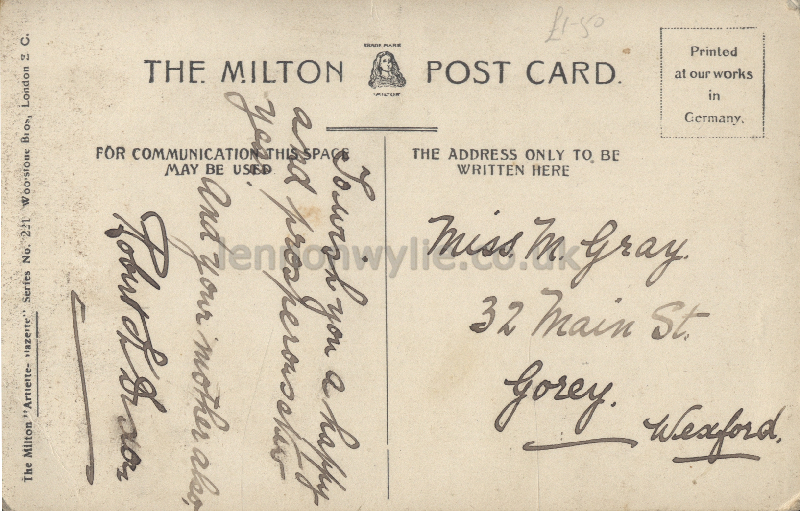 £1-50
TRADE MARK
THE MILTON POST CARD.
"MILTON"
Printed
at our works
in
Germany.
FOR COMMUNICATION THIS SPACE
MAY BE USED
THE ADDRESS ONLY TO BE
WRITTEN HERE
To wish you a happy
and prosperous
year.
And your mother also,
Robert
Miss. M. Gray.
32 Main St.
Gorey.
Wexford.
The Milton Series No. 221 Woolstone Bros, London E C.
lennonwylie.co.uk